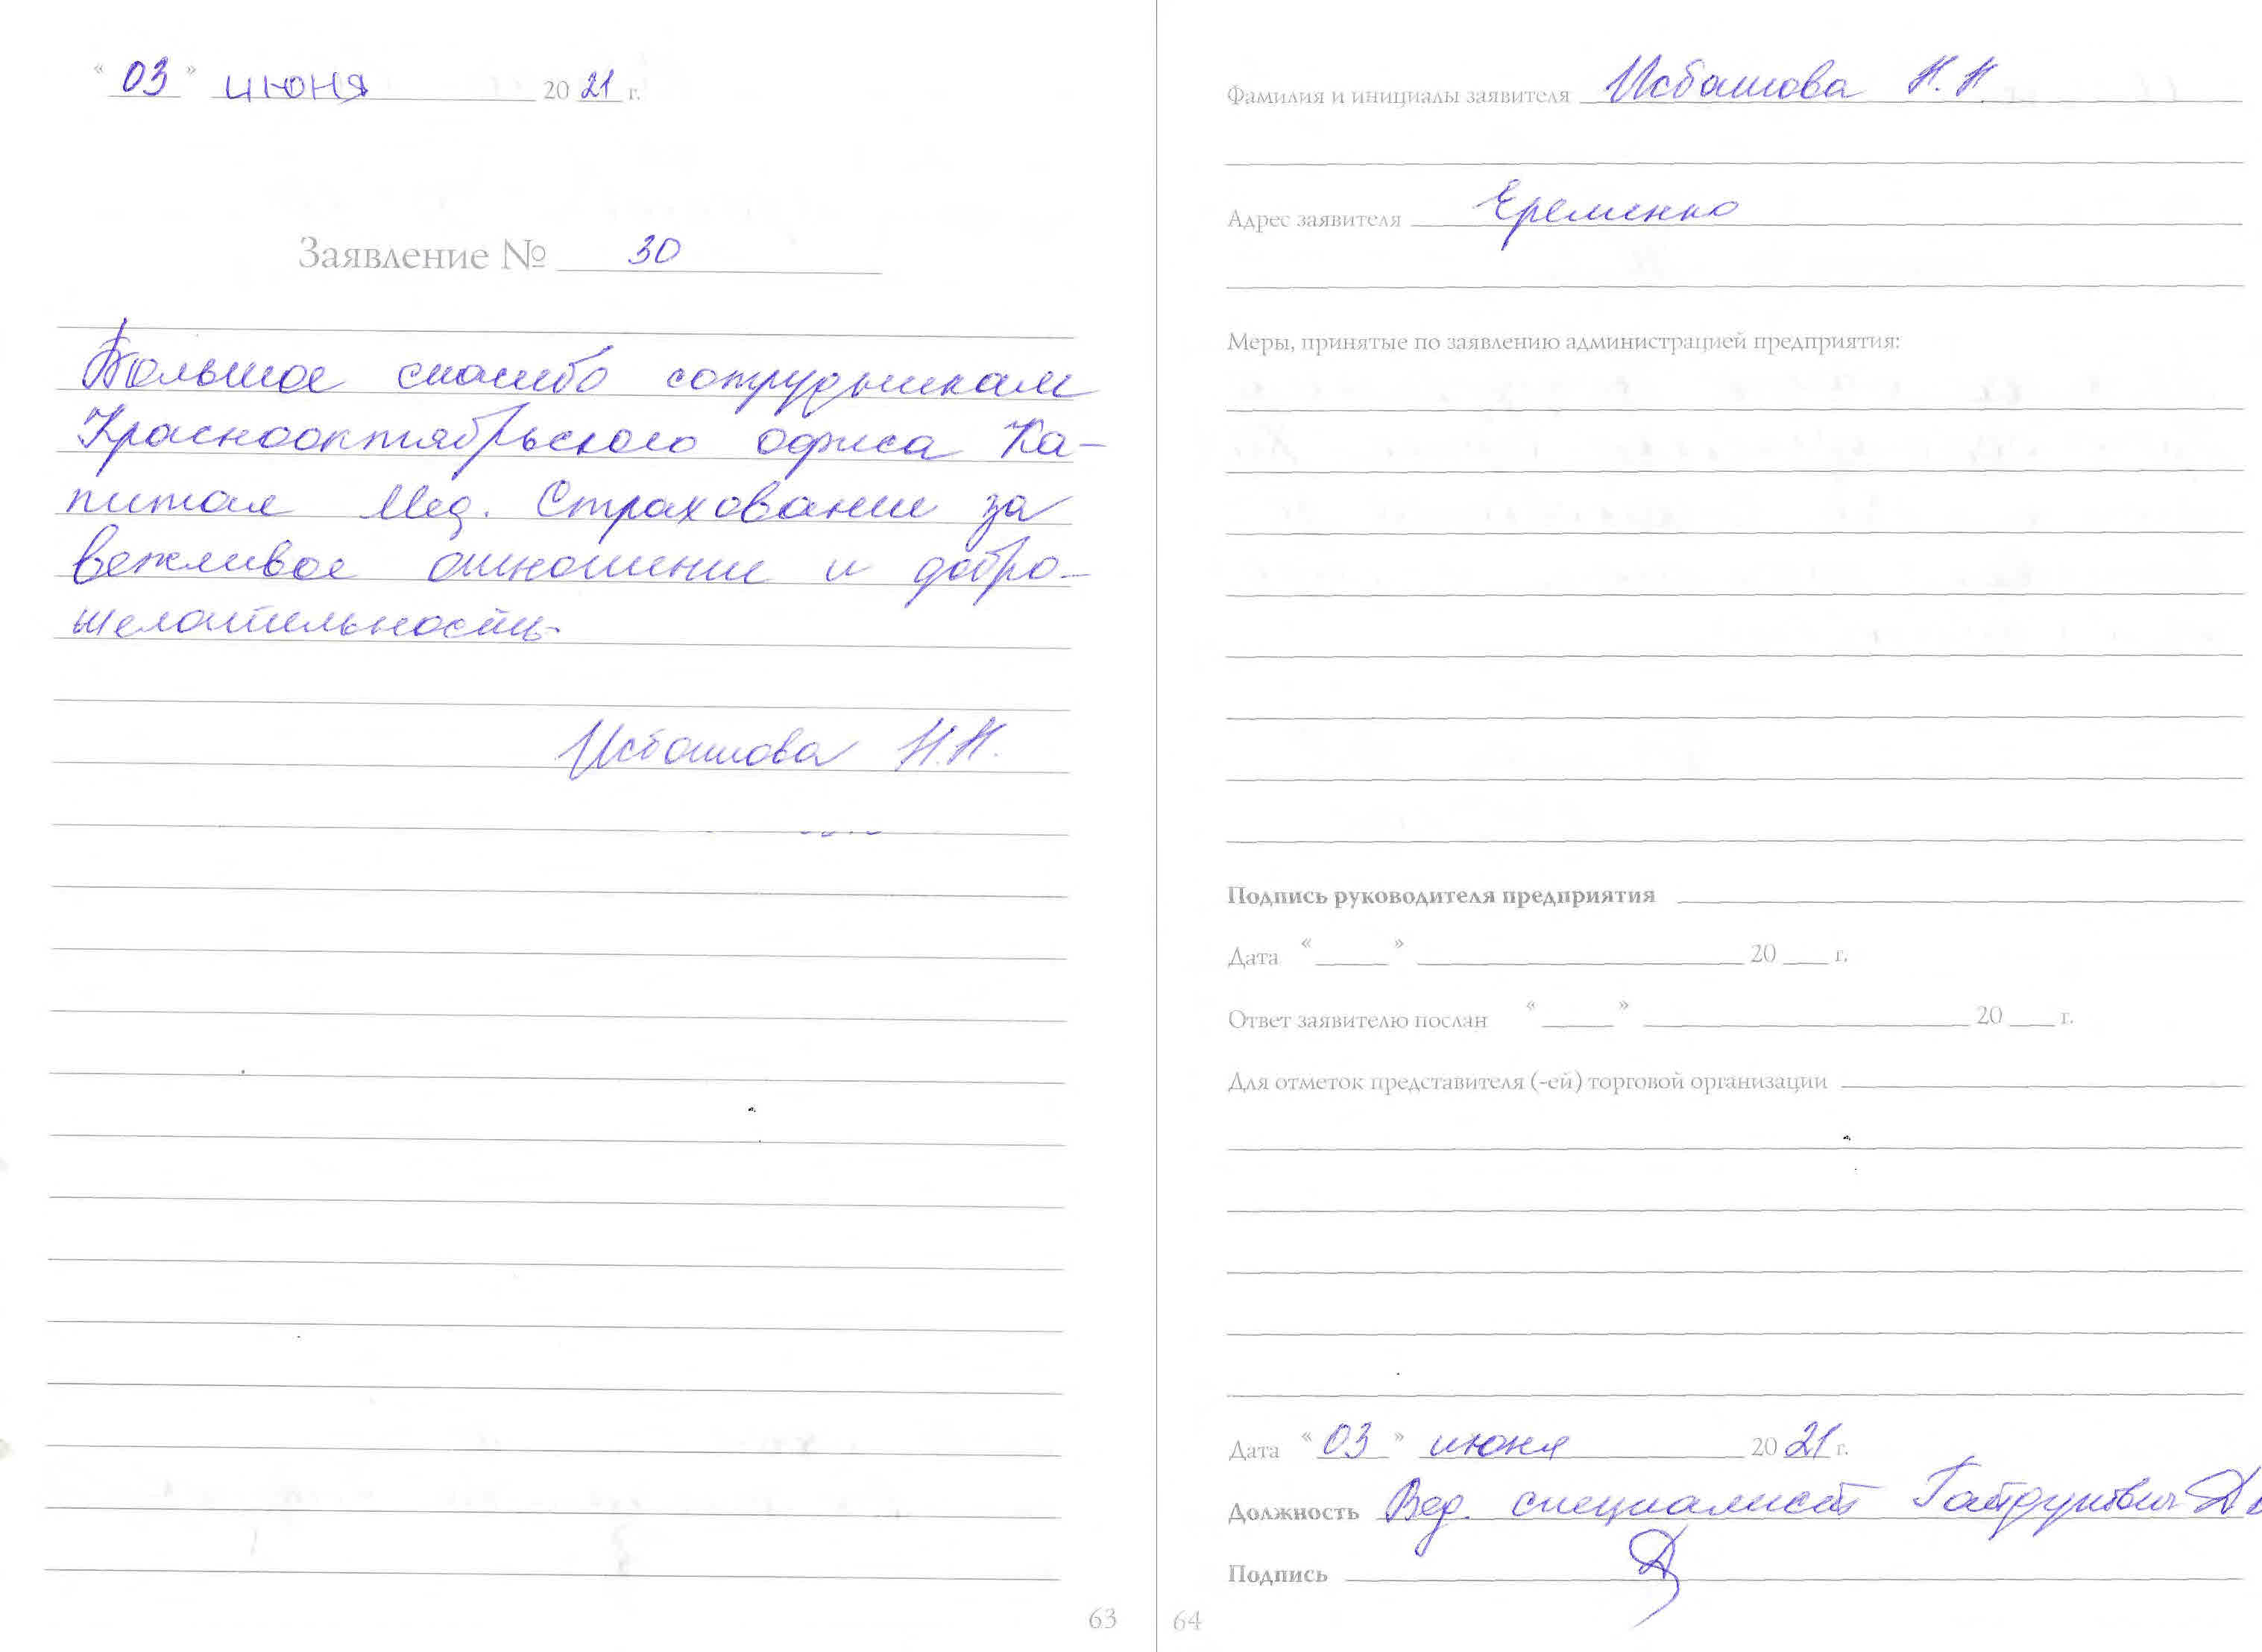 « 03 » июня 20 21 г.
Заявление № 30
Большое спасибо сотрудникам
Краснооктябрьского офиса Ка-
питал Мед. Страхование за
вежливое отношение и добро-
желательность.
Исбашова Н.Н.
63
Фамилия и инициалы заявителя Исбашова Н.Н.
Адрес заявителя Еременко
Меры, принятые по заявлению администрацией предприятия:
Подпись руководителя предприятия
Дата « » 20 г.
Ответ заявителю послан « » 20 г.
Для отметок представителя (-ей) торговой организации
Дата « 03 » июня 20 21 г.
Должность Вед. специалист
Подпись
64